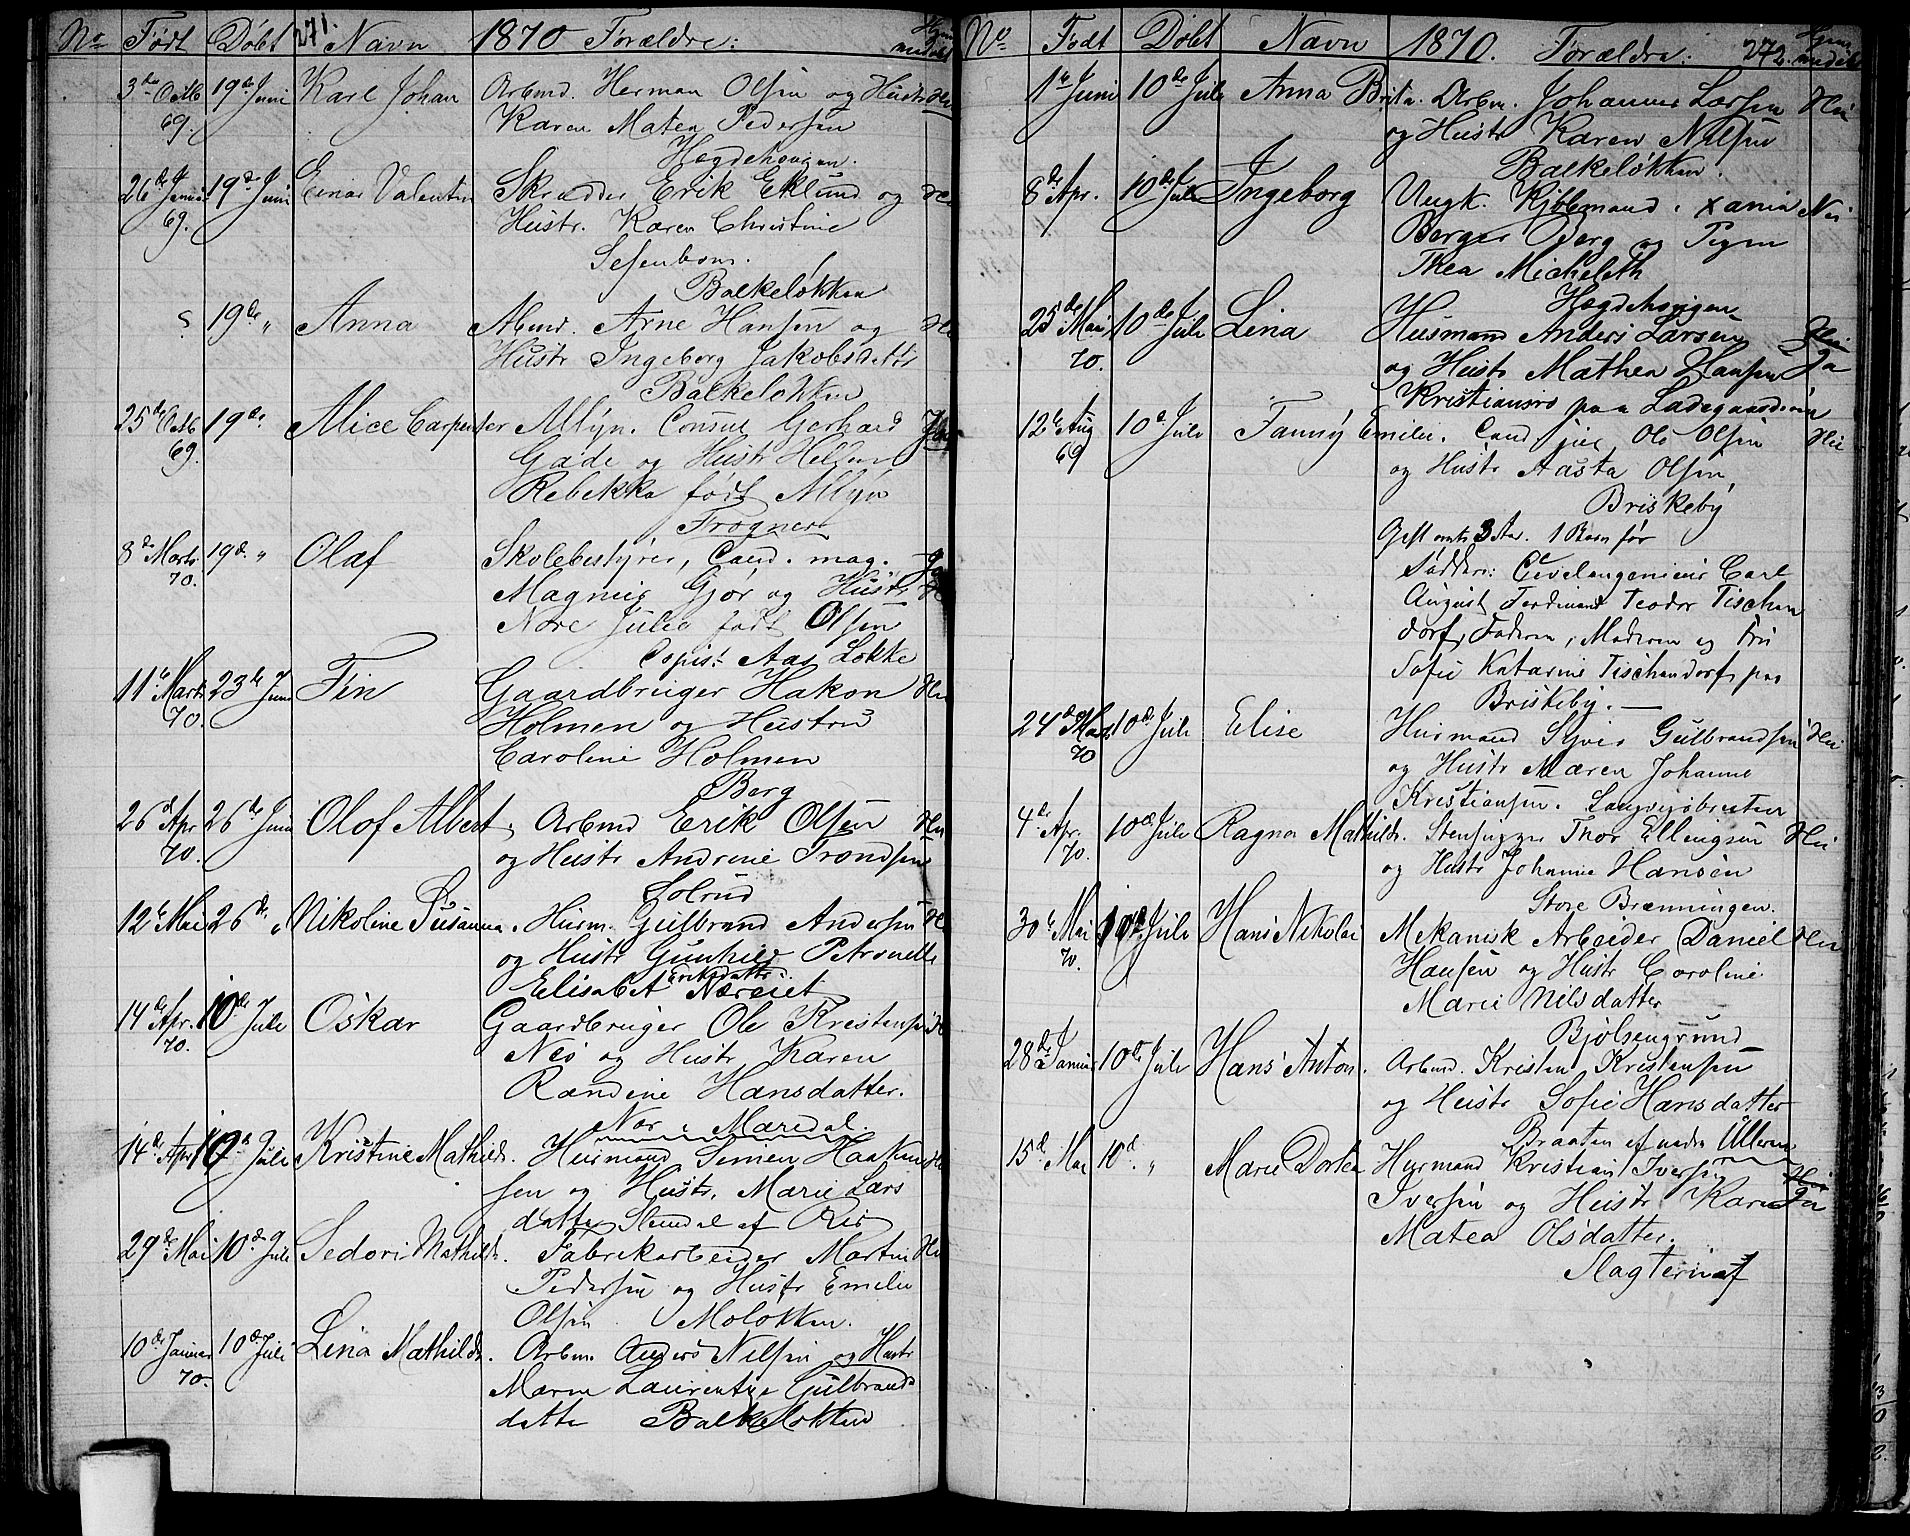 No Født Døbt 271. Navn 1870 Forældre: Hjemmedøbt
3de Octb 69. 19de Juni Karl Johan Arbmd. Herman Olsen og Hustr
Karen Matea Pedersen
Hægdehougen.
26de Januar 69. 19de Juni Einar Valentin Skrædder Erik Eklund og
Hustr. Karen Christine
Balkeløkken
19de " Anna Abmd. Arne Hansen og
Hustr Ingeborg Jakobsdatter
Balkeløkken
25de Octb 69. 19de Alice Carpenter Allyn. Consul Gerhard
Gade og Hustr Hellen
Rebekka født Allyn
Frogner
8de Marts 70. 19de " Olaf Skolebestyrer, Cand. mag.
Magnus Gjør og Hustr
Julie født Olsen
Aas Løkke
11te Marts 70. 23de Juni Fin Gaardbruger Hakon
Holmen og Hustru
Caroline Holmen
Berg
26d Apr 70. 26de Juni Olof Albert, Arbmd Erik Olsen
og Hustr Andrine Trondsen
Solrud
12te Mai 26de " Nikoline Susanna. Husm. Gulbrand Andersen
og Hustr Gunhild Petronelle
Elisabet Eriksdatter
14de Apr. 70. 10de Juli Oskar Gaardbruger Ole Kristensen
og Hustr Karen
Randine Hansdatter.
Nor i Maridal.
14de Apr 10de Juli Kristine Mathilde. Husmand Simen Haaken
sen og Hustr. Marie Lars
datter Stendal af Ris
29de Mai 10de Juli Sedori Mathilde. Fabrikarbeider Martin
Pedersen og Hustr Emilie
Olsen. Moløkken.
10de Januar 70. 10de Juli Lina Mathilde. Arbm. Anders Nilsen og Hustr
Maren Laurentze Gulbrands
datter Balkeløkken
No Født Døbt Navn 1870. Forældre: 272. Hjemmedøbt
1te Juni 10de Juli Anna Brita. Arbm. Johannes Larsen Nei
og Hustr Karen Nilsen
Balkeløkken.
8de Apr. 10de Juli Ingeborg Ungk. Kjøbmand i Xania Nei
Berger Berg og Pigen
Thea Micheleth
Hægdehougen
25de Mai 70. 10de Juli Lina Husmand Anders Larsen Nei
og Hustr Mathea Hansen Ja
Kristiansro paa Ladegaardsøen
12te Aug 69 10d Juli Fanny Emilie. Cand jur Ole Olsen Nei
og Hustr Aasta Olsen,
Briskeby
Gift omtr 3 Aar. 1 Barn før
Faddere: Civelengeniør Carl
August Ferdinant Teodor Tischen
dorf, Faderen, Moderen og Fru
Sofie Katarine Tischendorf, paa
Briskeby. —
24d Mar 70 10de Juli Elise Husmand Syver Gulbrandsen Nei
og Hustr Maren Johanne
Kristiansen.
4de Apr. 70. 10de Juli Ragna Mathilde. Stenhugger Thor Ellingsen Nei
og Hustr Johanne Hansen
Store Brænningen.
30te Mai 70. 10de Juli Hans Nikolai Mekanisk Arbeider Daniel Nei
Hansen og Hustr Caroline
Marie Nilsdatter
Bjølsengrund
28de Januar 10de Juli Hans Anton. Arbmd. Kristen Kristensen
og Hustr Sofie Hansdatter
Braaten af nedre Ullern
15d Mai 10d. " Marie Dortea Husmand Kristian Iversen Nei
Iversen og Hustr Karen Ja
Matea Olsdatter.
Slagteri af